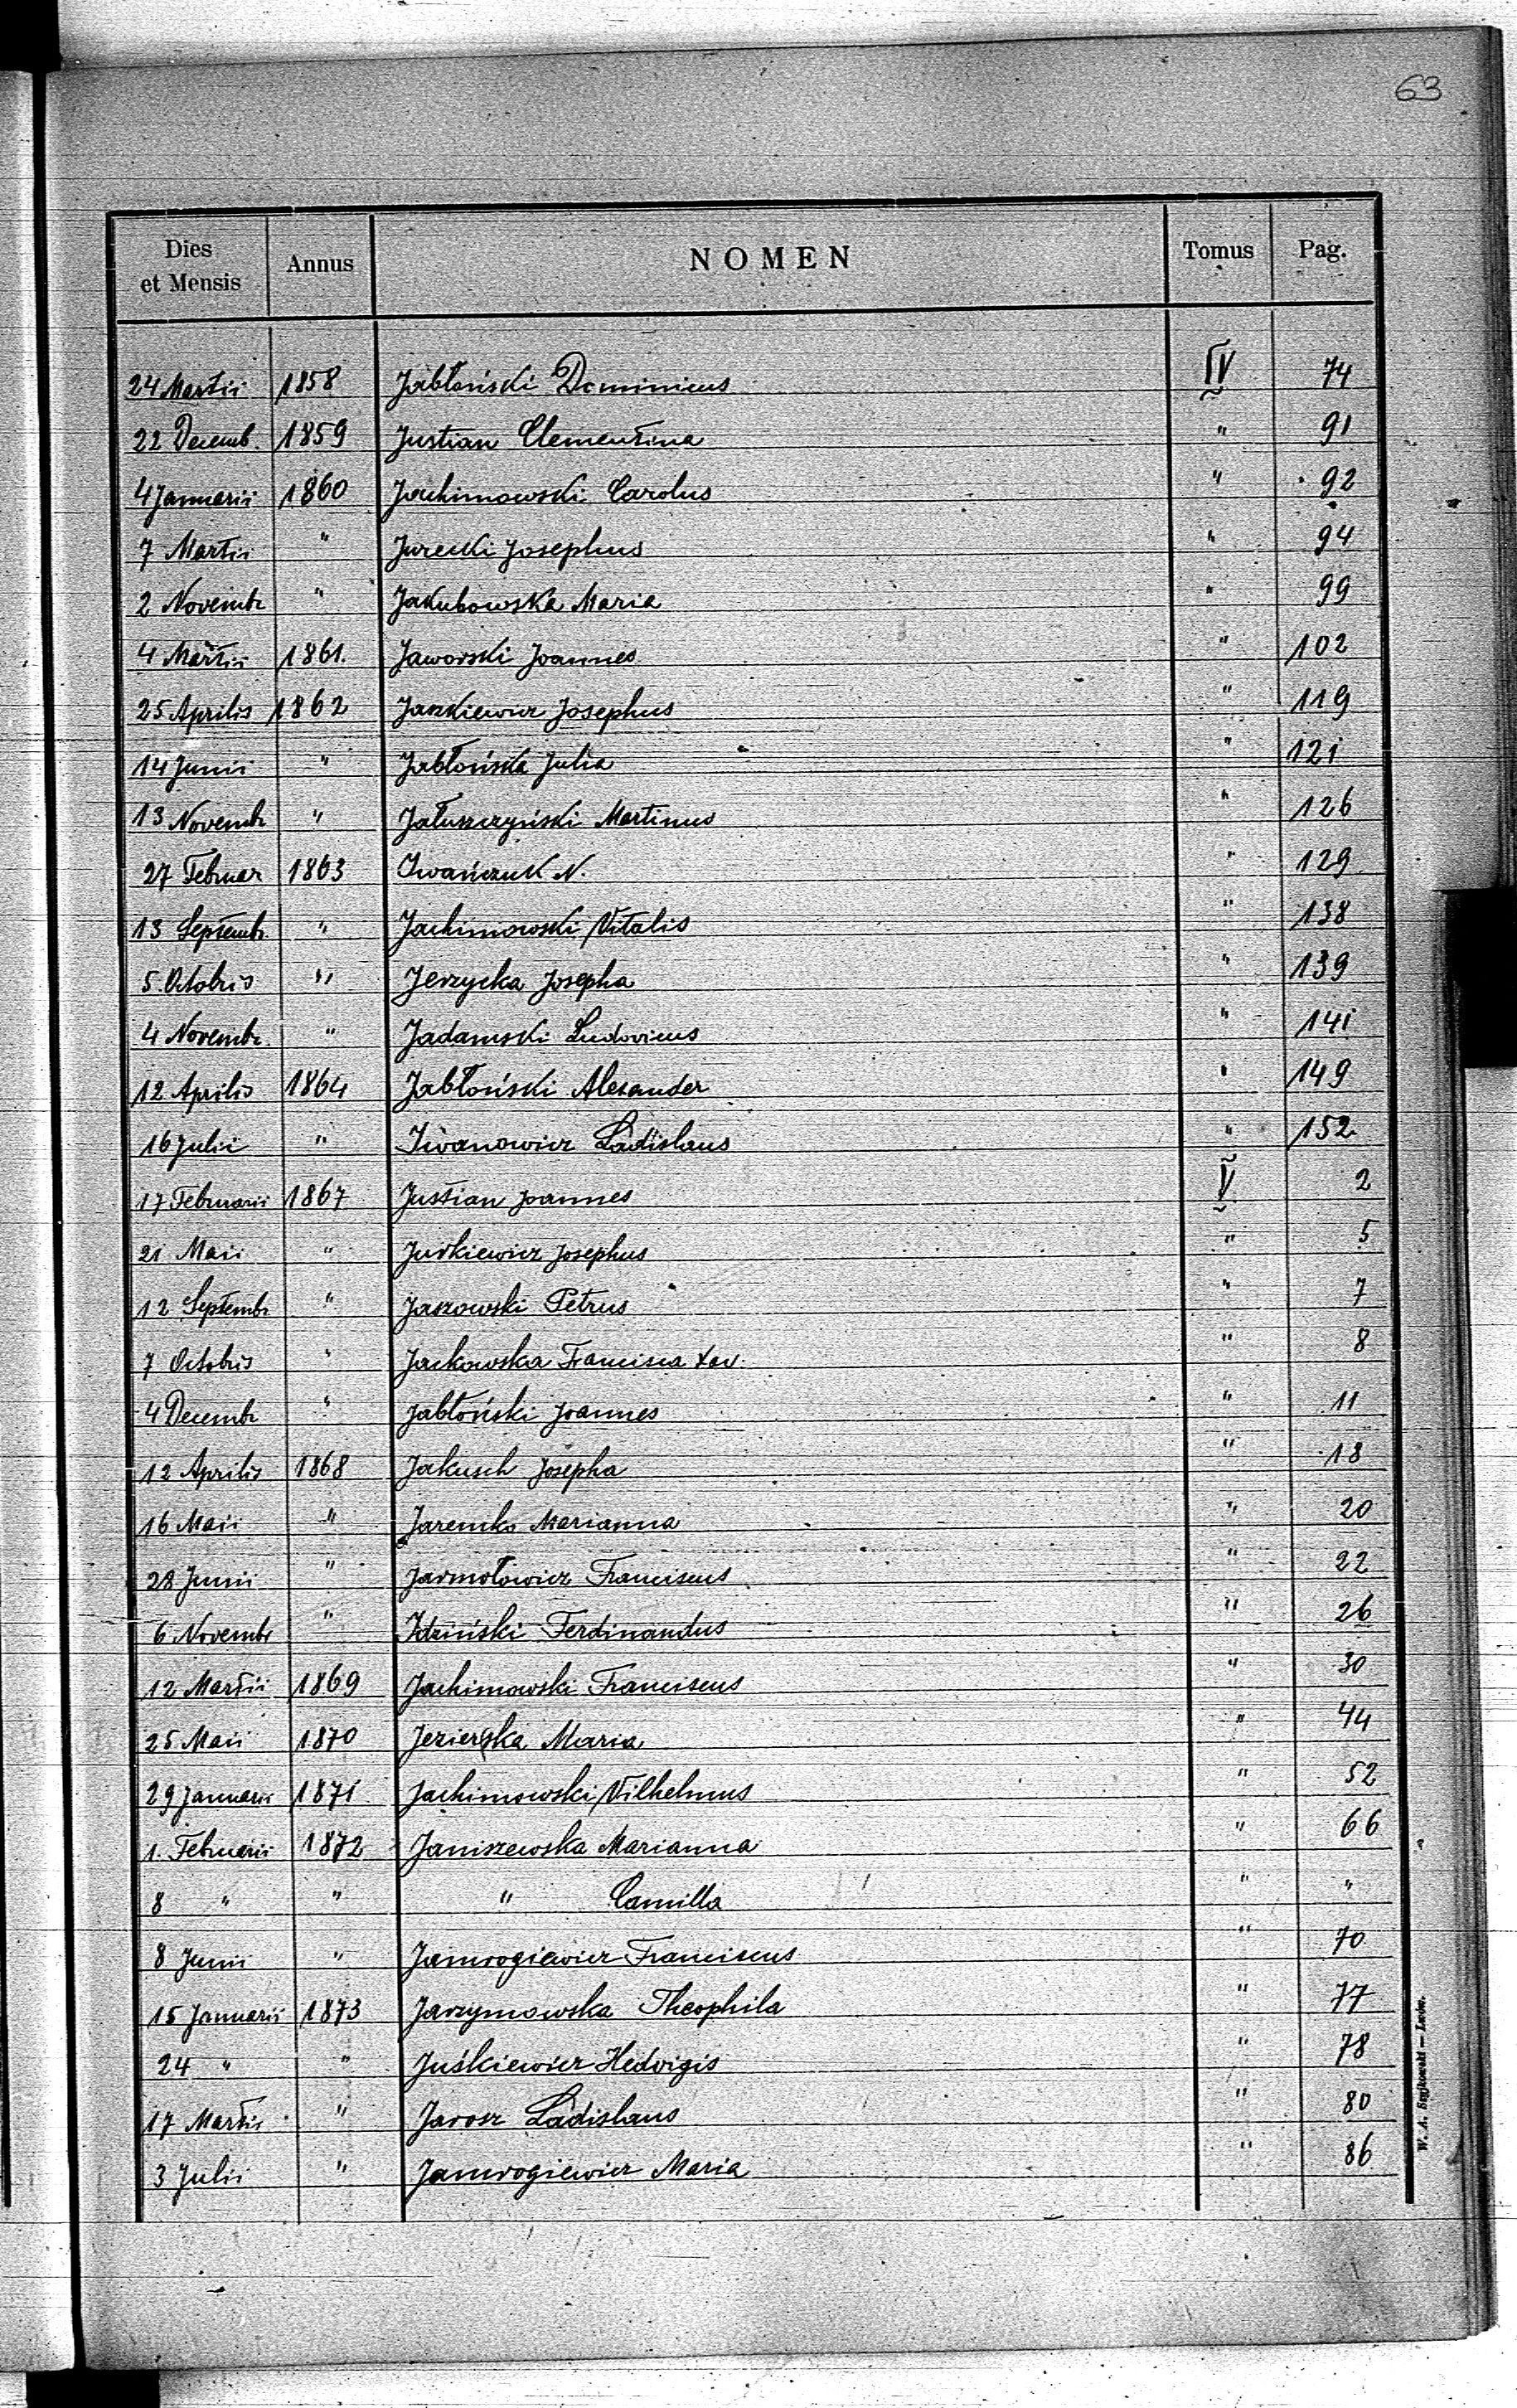 63
Dies et Mensis Annus NOMEN Tomus Pag.
24 Martii 1858 Jabłoński Dominicus IV 74
22 Decemb. 1859 Justian Clementina " 91
4 Januarii 1860 Jachimowski Carolus " 92
7 Martii " Jurecki Josephus " 94
2 Novembr " Jakubowska Maria " 99
4 Martii 1861. Jaworski Joannes " 102
25 Aprilis 1862 Jaszkiewicz Josephus " 119
14 Junii " Jabłońska Julia " 121
13 Novembr " Jałuszczyński Martinus " 126
27 Februar 1863 Iwańczuk N. " 129
13 Septembr. " Jachimowski Vitalis " 138
5. Octobris " Jerzycka Josepha " 139
4 Novembr. " Jadamski Ludovicus " 141
12 Aprilis 1864 Jabłoński Alexander " 149
16 Julii " Iwanowicz Ladislaus " 152
17 Februarii 1867 Justian Joannes V 2
21 Maii " Juśkiewicz Josephus " 5
12 Septembr " Jaszowski Petrus " 7
7 Octobris " Jackowska Francisca Xav. " 8
4 Decembr " Jabłoński Joannes " 11
12 Aprilis 1868 Jakusch Josepha " 18
16 Maii " Jaremko Marianna " 20
28 Junii " Jarmołowicz Franciscus " 22
6 Novembr " Idziński Ferdinandus " 26
12 Martii 1869 Jachimowski Franciscus " 30
25 Maii 1870 Jezierska Maria " 44
29 Januarii 1871 Jachimowski Vilhelmus " 52
1. Februarii 1872 Janiszewska Marianna " 66
8 " " " Camilla " "
8 Junii " Jamrogiewicz Franciscus " 70
15 Januarii 1873 Jarzymowska Theophila " 77
24 " " Juśkiewicz Hedvigis " 78
17 Martii " Jarosz Ladislaus " 80
3 Julii " Jamrogiewicz Maria " 86